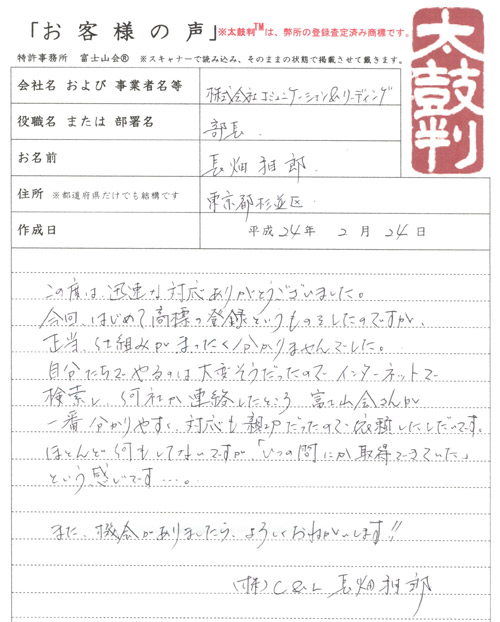 「お客様の声」※太鼓判TMは、弊所の登録査定済み商標です。
太鼓判
特許事務所 富士山会® ※スキャナーで読み込み、そのままの状態で掲載させて戴きます。
会社名 および 事業者名等 株式会社コミュニケーション&リーディング
役職名 または 部署名 部長.
お名前 長畑 雅郎
住所 ※都道府県だけでも結構です 東京都杉並区
作成日 平成 24年 2月 24日
この度は、迅速な対応ありがとうございました。
今回、はじめて商標の登録というものをしたのですが、
正直、仕組みがまったく分かりませんでした。
自分たちでやるのは大変そうだったので インターネットで
検索し、何社か連絡したところ 富士山会さんが
一番分かりやすく 対応も親切だったので 依頼したしだいです。
ほとんど何もしてないですが「いつの間にか取得できていた」
という感じです…。
また、機会がありましたら、よろしくおねがいします!!
(株)C&L 長畑雅郎